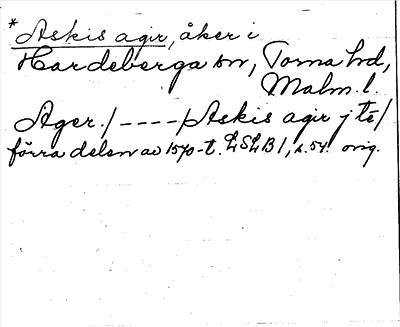 * Askis agir, åker i
Hardeberga sn, Torna hd,
Malm. l.
Ager. / - - - - / Askis agir j te /
förra delen av 1570-t. LSLB 1, s. 54. orig.